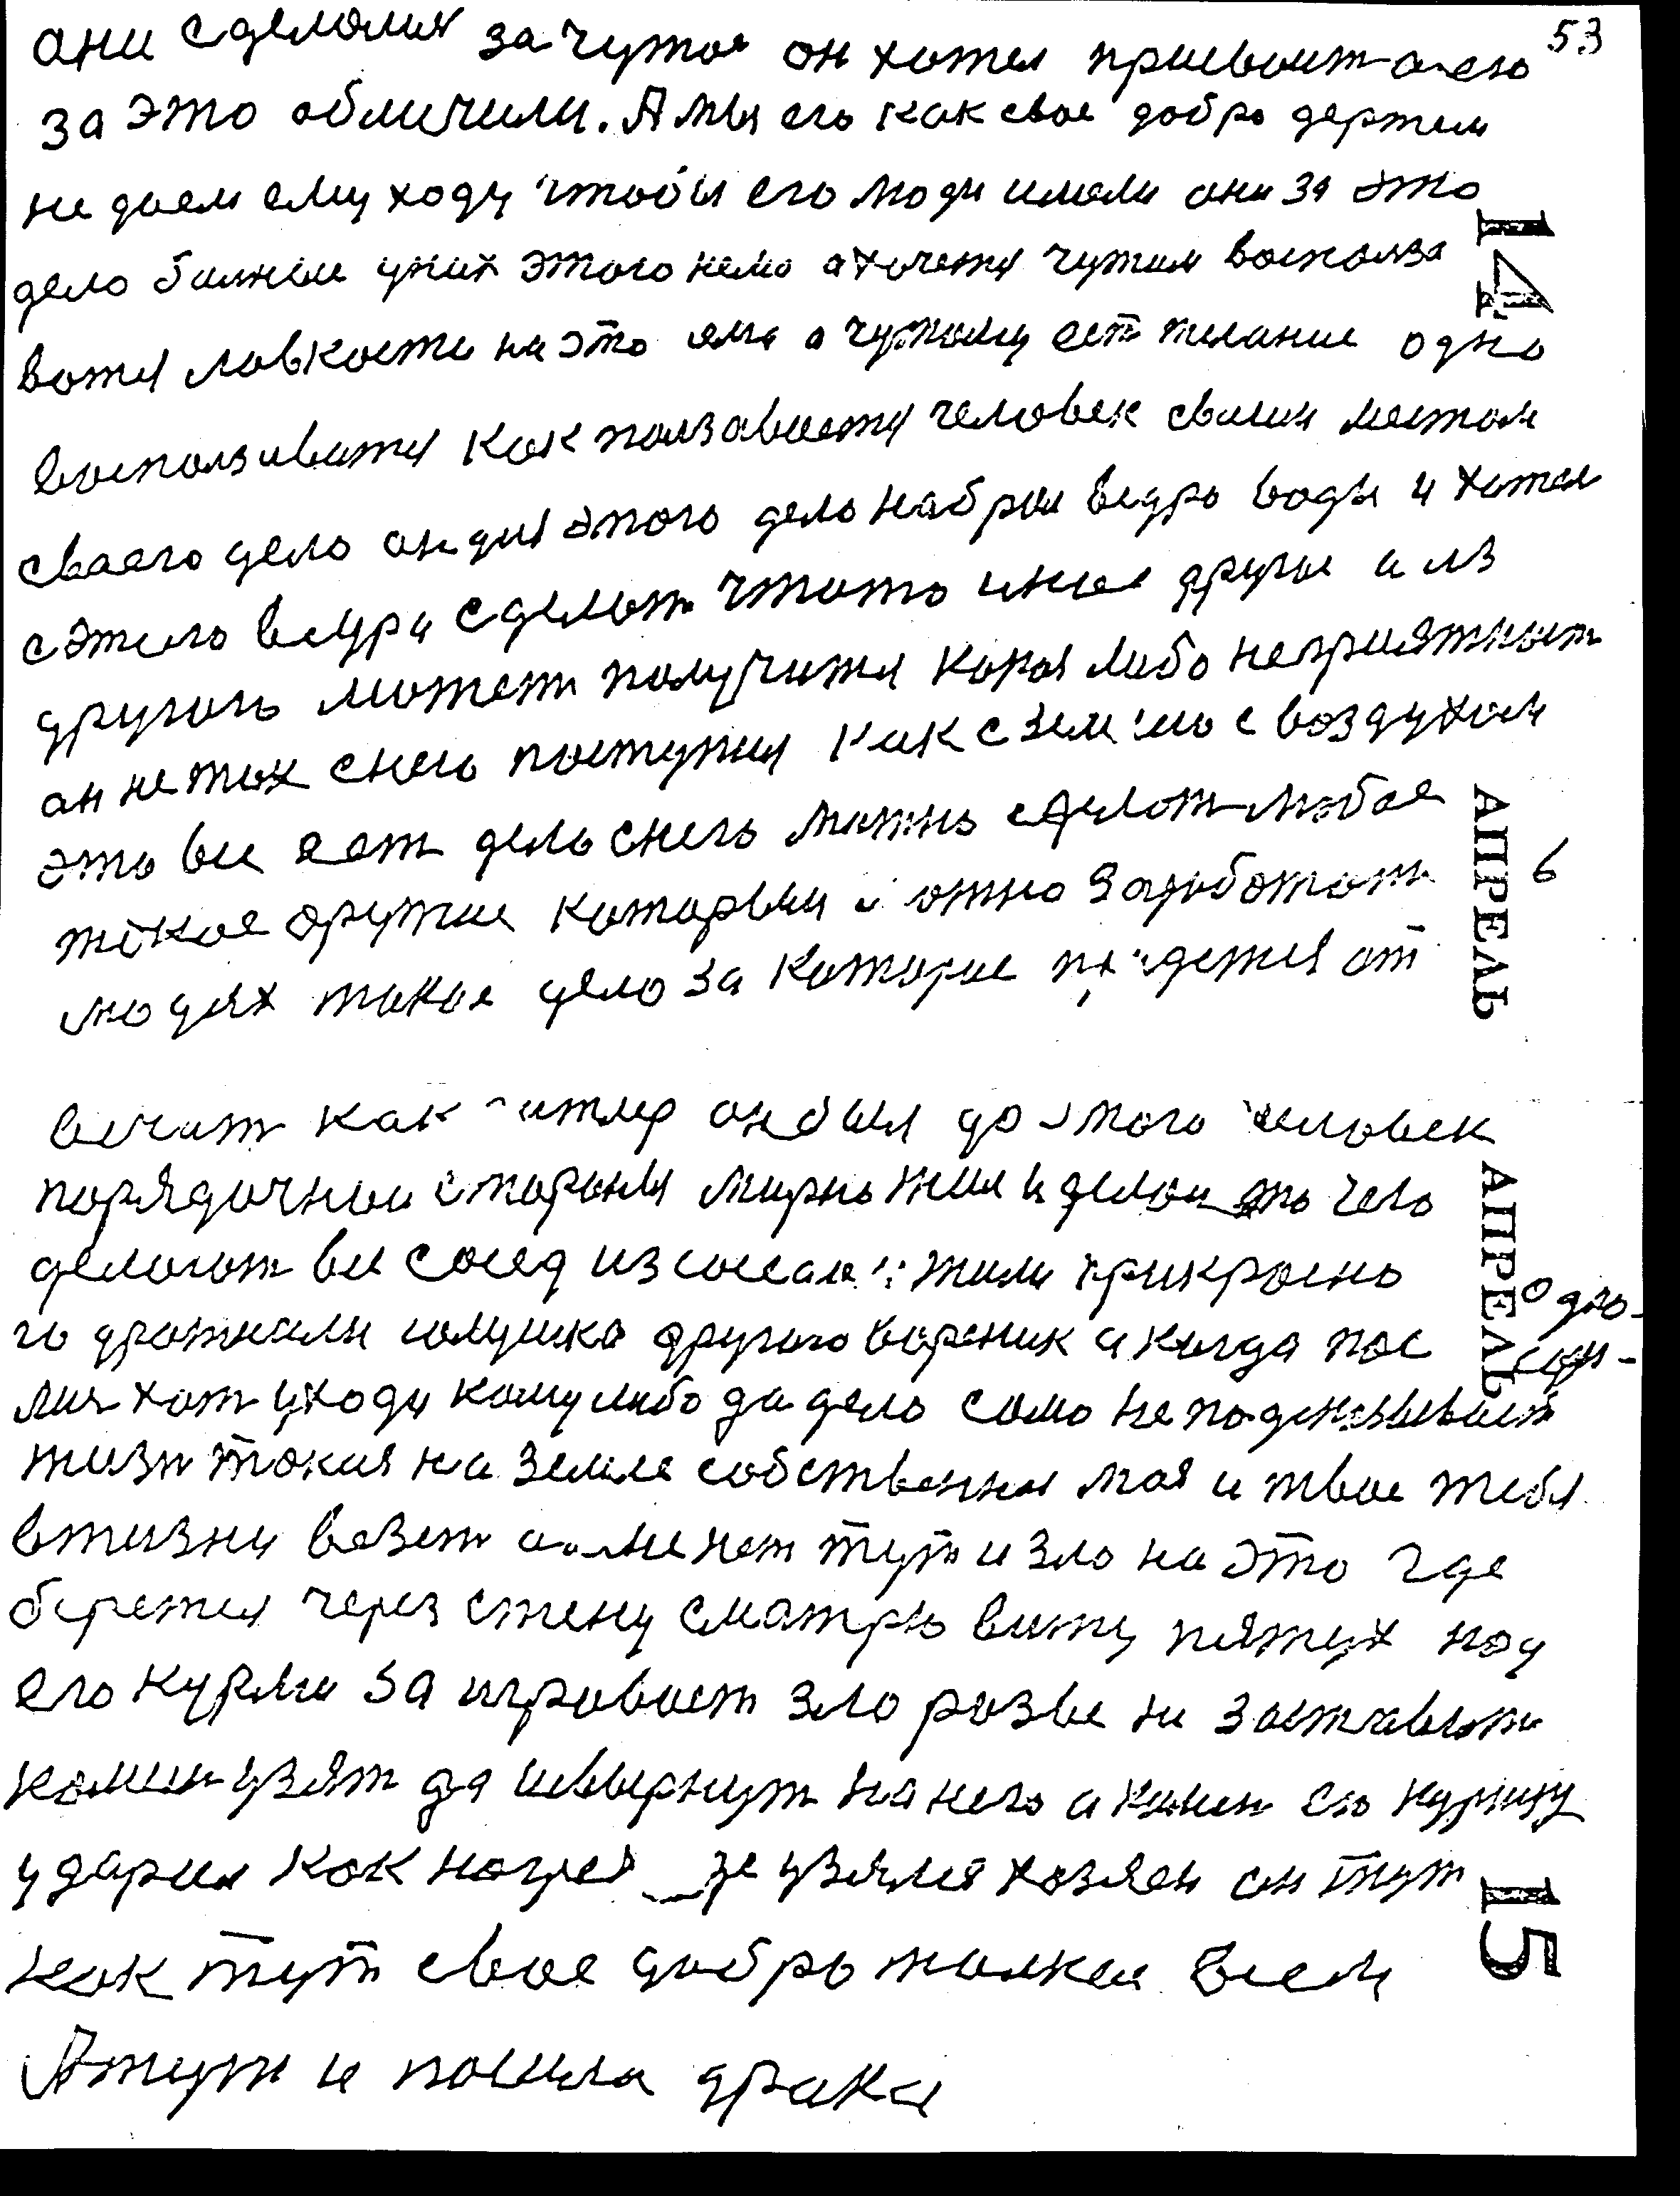 53
они сделолися за чужое он хотел присвоит а его
за это обличили. А мы его как свое добро держем
не даем ему ходу чтобы его люди имели они за это
дело болные у них этого нема а хочетя чужим восползо
ватя ловкости на это яма а чужому ест желание одно
восползиватя как ползаваетя человек своим местом
сваего дело он для этого дело набрал ведро воды и хотел
с этого ведра сделат чтото иное другое а из
другого может получитя кокоя либо неприятност
он не так с него поступил как с землею с воздухом
это все ест дело с него можно сделат любое
такое оружие которым можно заработат
людях такое дело за которое придетя от
14
6
АПРЕЛЬ
вечат как гитлер он был до этого человек
порядочной стороны мирно жил и делал то чего
делогот все сосед из соседам жили прикрасно одно-
го дрожнили голушка другого вареник а когда пос сори-
лис хот уходи кому либо да дело само не подсказывает
жизн такия на земле собственная моя и твое тебя
в жизни везет а мне нет тут и зло на это где
беретя через стену сматрю вижу пятух над
его курми заигровает зло розве не заставит
комин узят да швырнут на него а камен его курицу
ударил как на грех где узялся хозяен он тут
как тут свое добро жалкея всем
А тут и пошла драка
АПРЕЛЬ
15